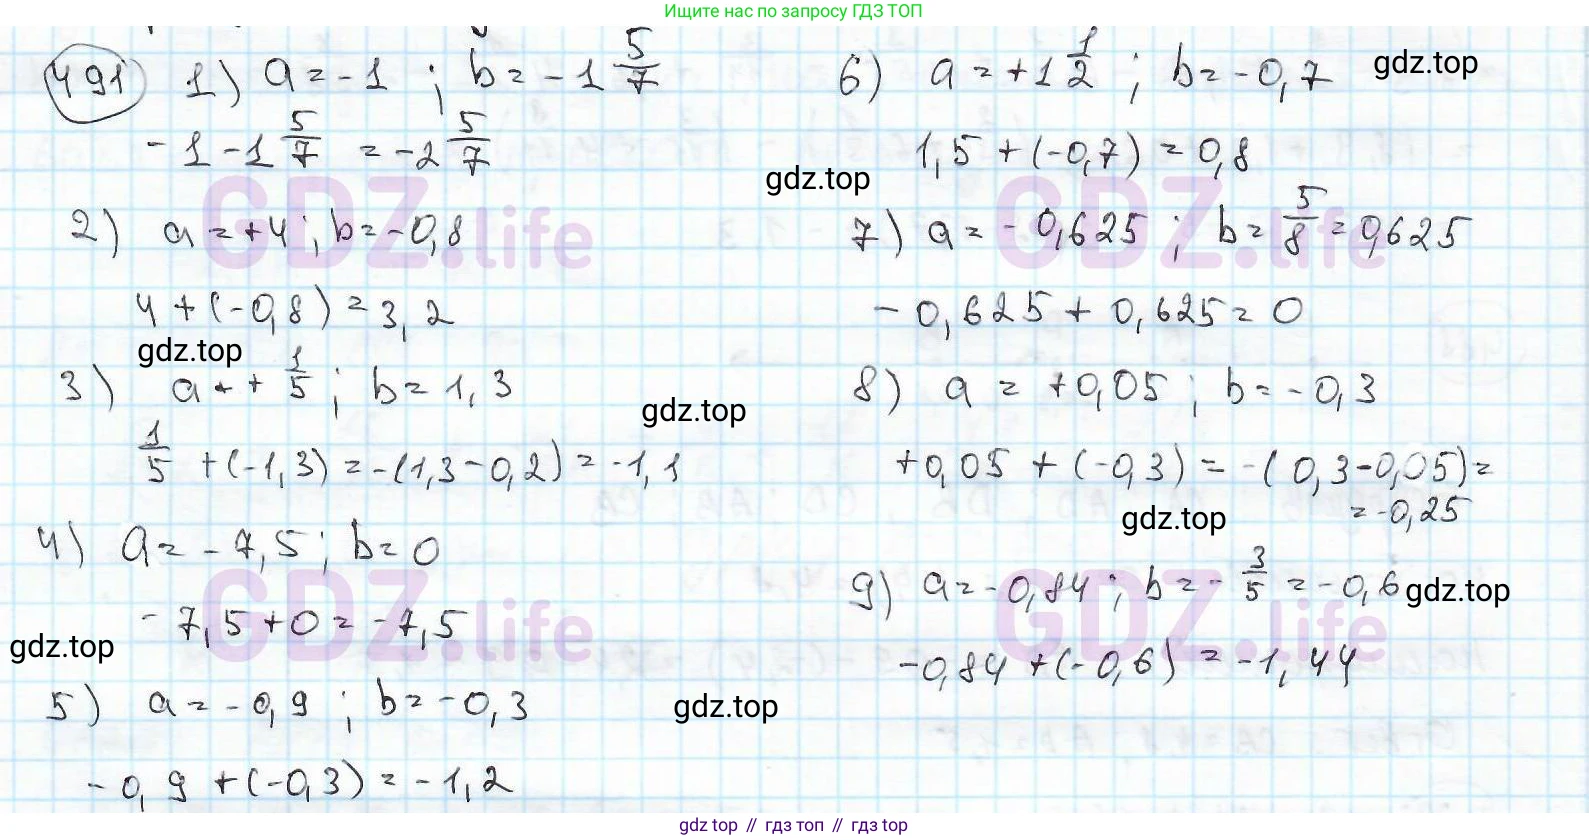 Ищите нас по запросу ГДЗ ТОП
491 1) a = -1 ; b = -1 5/7
-1 - 1 5/7 = -2 5/7
2) a = +4 ; b = -0,8
4 + (-0,8) = 3,2
gdz.top
3) a = + 1/5 ; b = 1,3
1/5 + (-1,3) = -(1,3 - 0,2) = -1,1
4) a = -7,5 ; b = 0
-7,5 + 0 = -7,5
gdz.top
5) a = -0,9 ; b = -0,3
-0,9 + (-0,3) = -1,2
6) a = +1 1/2 ; b = -0,7
gdz.top
1,5 + (-0,7) = 0,8
gdz.top
7) a = -0,625 ; b = 5/8 = 0,625
-0,625 + 0,625 = 0
8) a = +0,05 ; b = -0,3
gdz.top
+0,05 + (-0,3) = -(0,3 - 0,05) =
= -0,25
gdz.top
9) a = -0,84 ; b = - 3/5 = -0,6
gdz.top
-0,84 + (-0,6) = -1,44
gdz.top
GDZ.life
GDZ.life
GDZ.life
GDZ.life
gdz top // гдз топ // гдз top